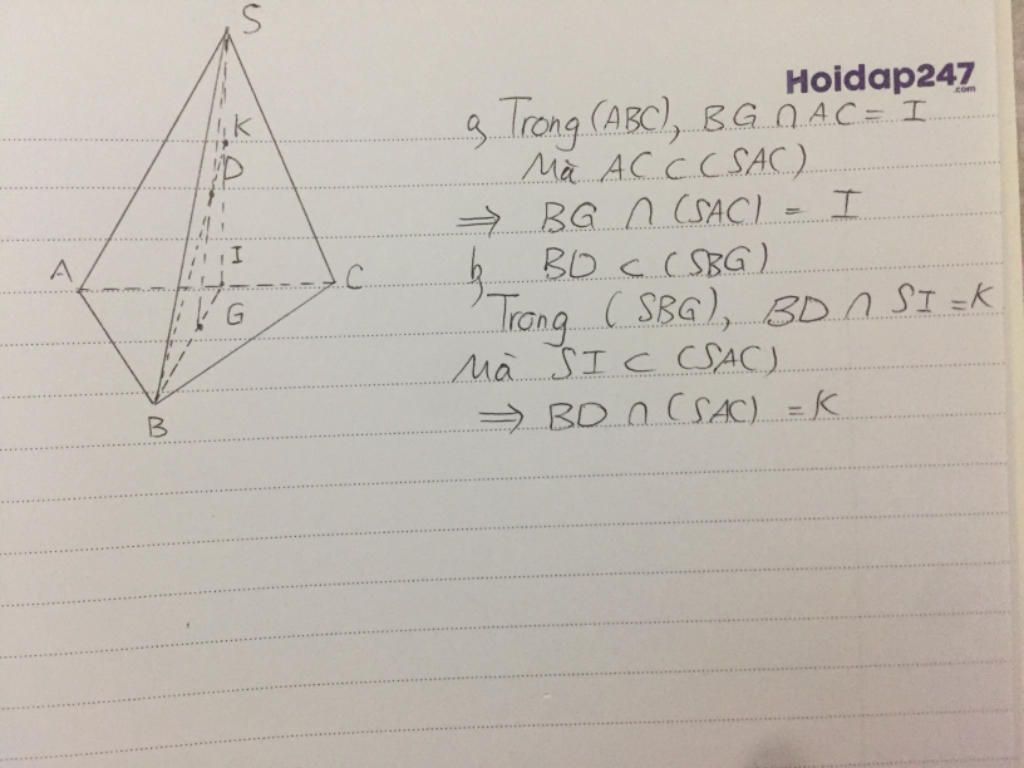 S
K
D
I
A
C
G
B
Hoidap247
.com
a, Trong (ABC), BG ∩ AC = I
Mà AC ⊂ (SAC)
⇒ BG ∩ (SAC) = I
b, BD ⊂ (SBG)
Trong (SBG), BD ∩ SI = K
Mà SI ⊂ (SAC)
⇒ BD ∩ (SAC) = K